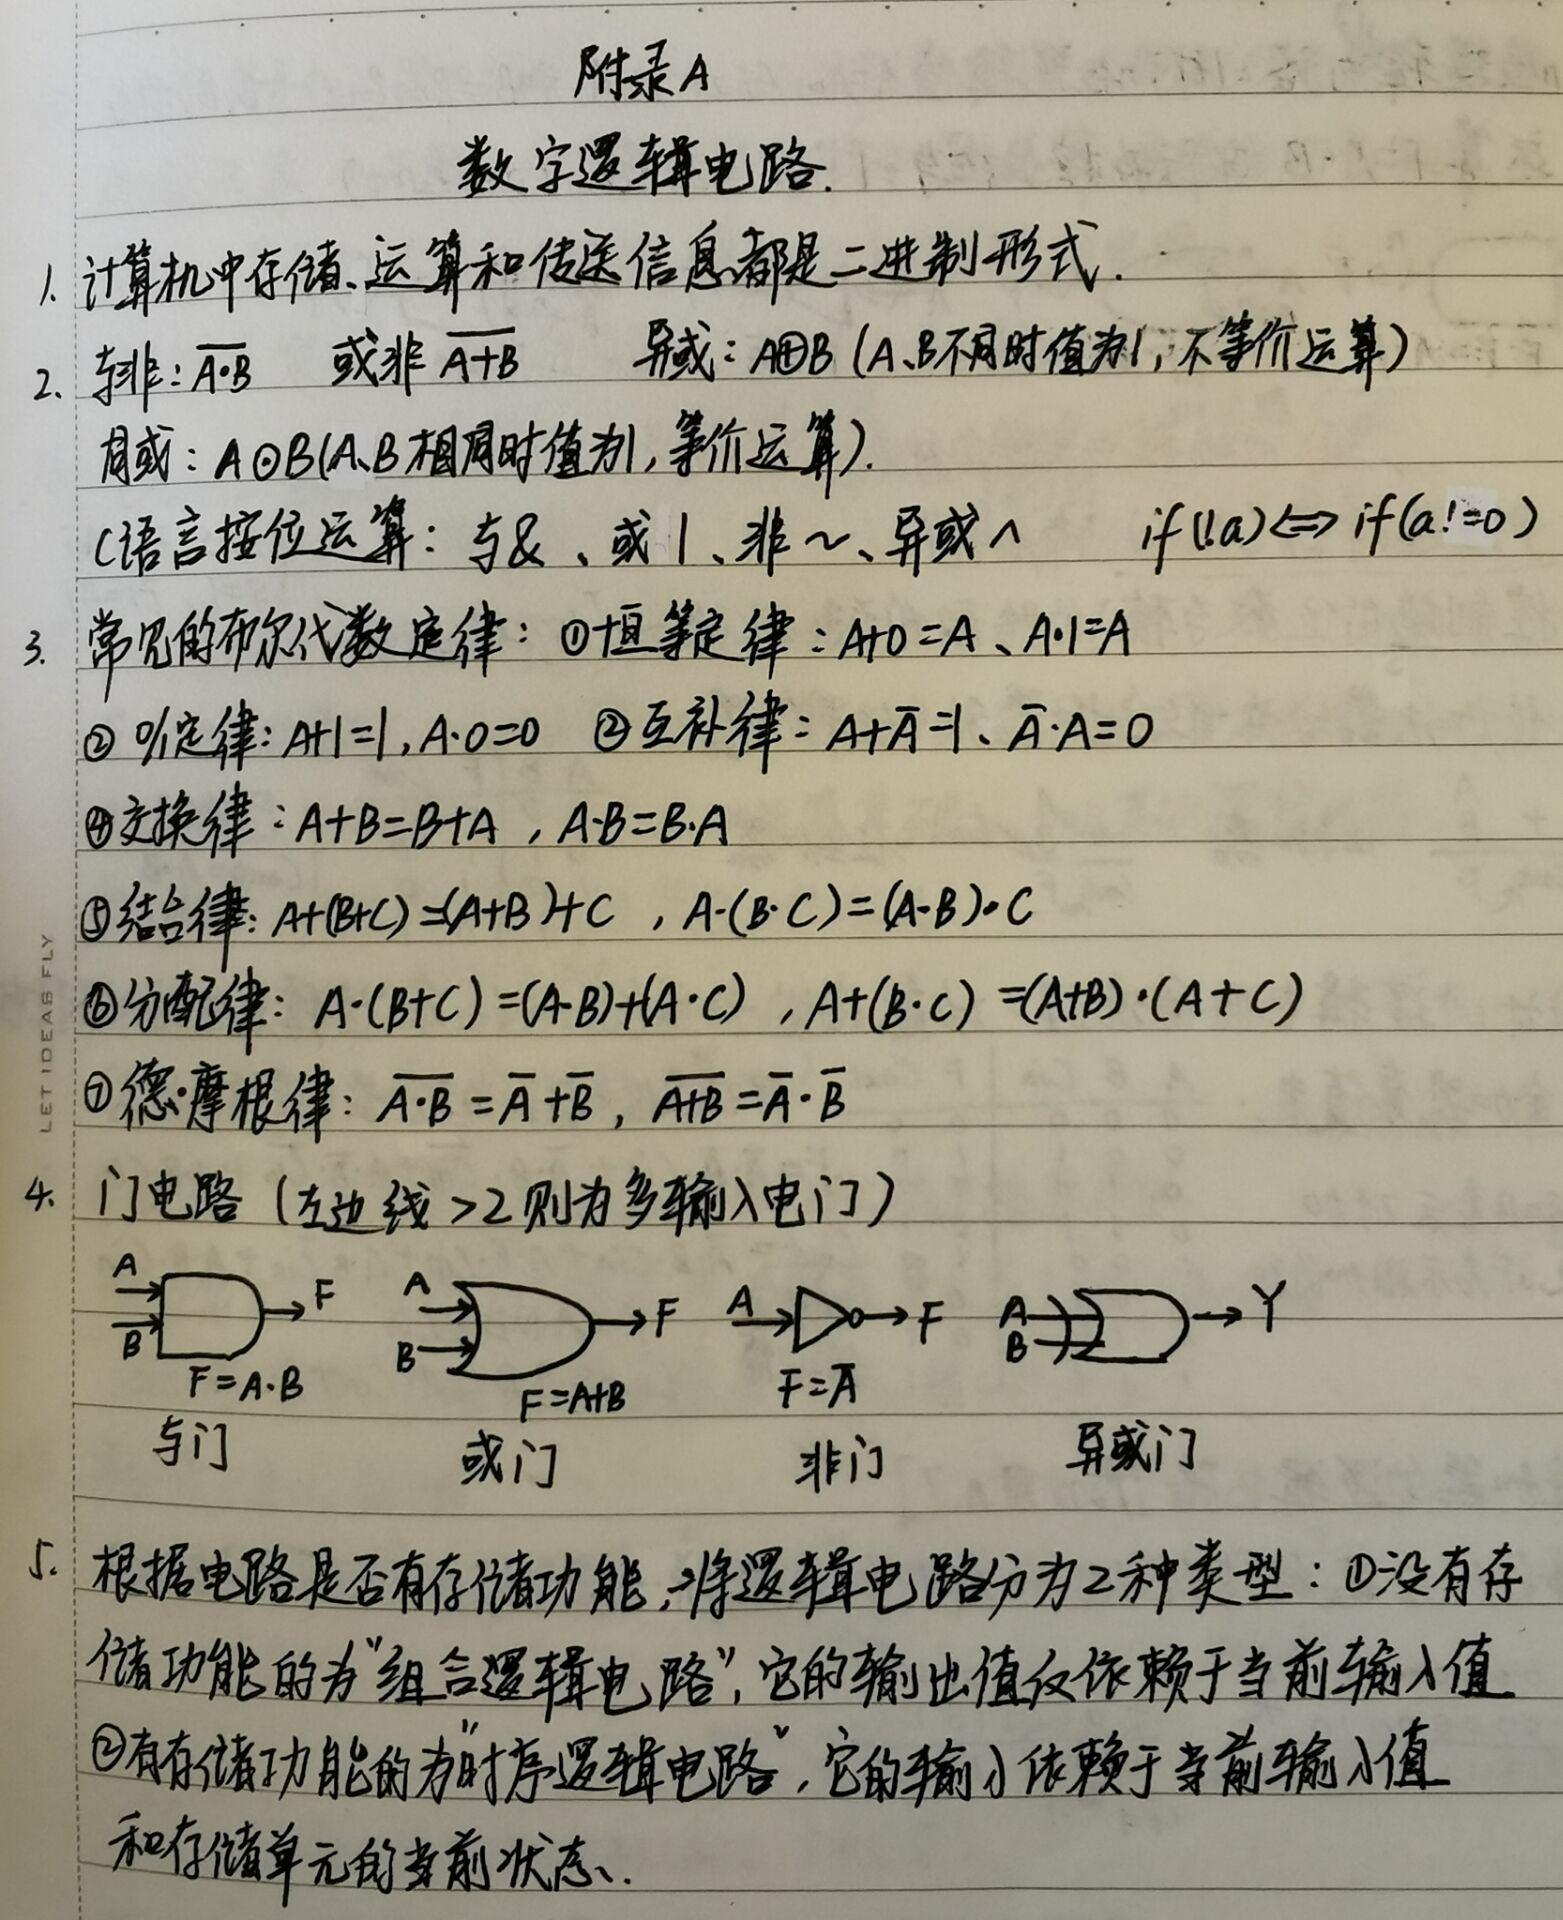 附录A
数字逻辑电路.
1. 计算机中存储、运算和传送信息都是二进制形式.
2. 与非: \overline{A·B} 或非 \overline{A+B} 异或: A⊕B (A、B不同时值为1, 不等价运算)
同或: A⊙B(A、B相同时值为1, 等价运算).
C语言按位运算: 与&、或|、非~、异或^ if(!a)⇔if(a!=0)
3. 常见的布尔代数定律: ①恒等定律: A+0=A、A·1=A
② 0/1定律: A+1=1, A·0=0 ②互补律: A+\overline{A}=1、\overline{A}·A=0
④交换律: A+B=B+A , A·B=B·A
⑤结合律: A+(B+C)=(A+B)+C , A·(B·C)=(A·B)·C
⑥分配律: A·(B+C)=(A·B)+(A·C) , A+(B·C)=(A+B)·(A+C)
⑦德·摩根律: \overline{A·B}=\overline{A}+\overline{B}, \overline{A+B}=\overline{A}·\overline{B}
4. 门电路 (左边线>2则为多输入电门)
A B F F=A·B
A B F F=A+B
A F F=\overline{A}
A B Y
与门 或门 非门 异或门
5. 根据电路是否有存储功能, 将逻辑电路分为2种类型: ①没有存
储功能的为“组合逻辑电路”, 它的输出值仅依赖于当前输入值
②有存储功能的为“时序逻辑电路”, 它的输入依赖于当前输入值
和存储单元的当前状态.
LET IDEAS FLY